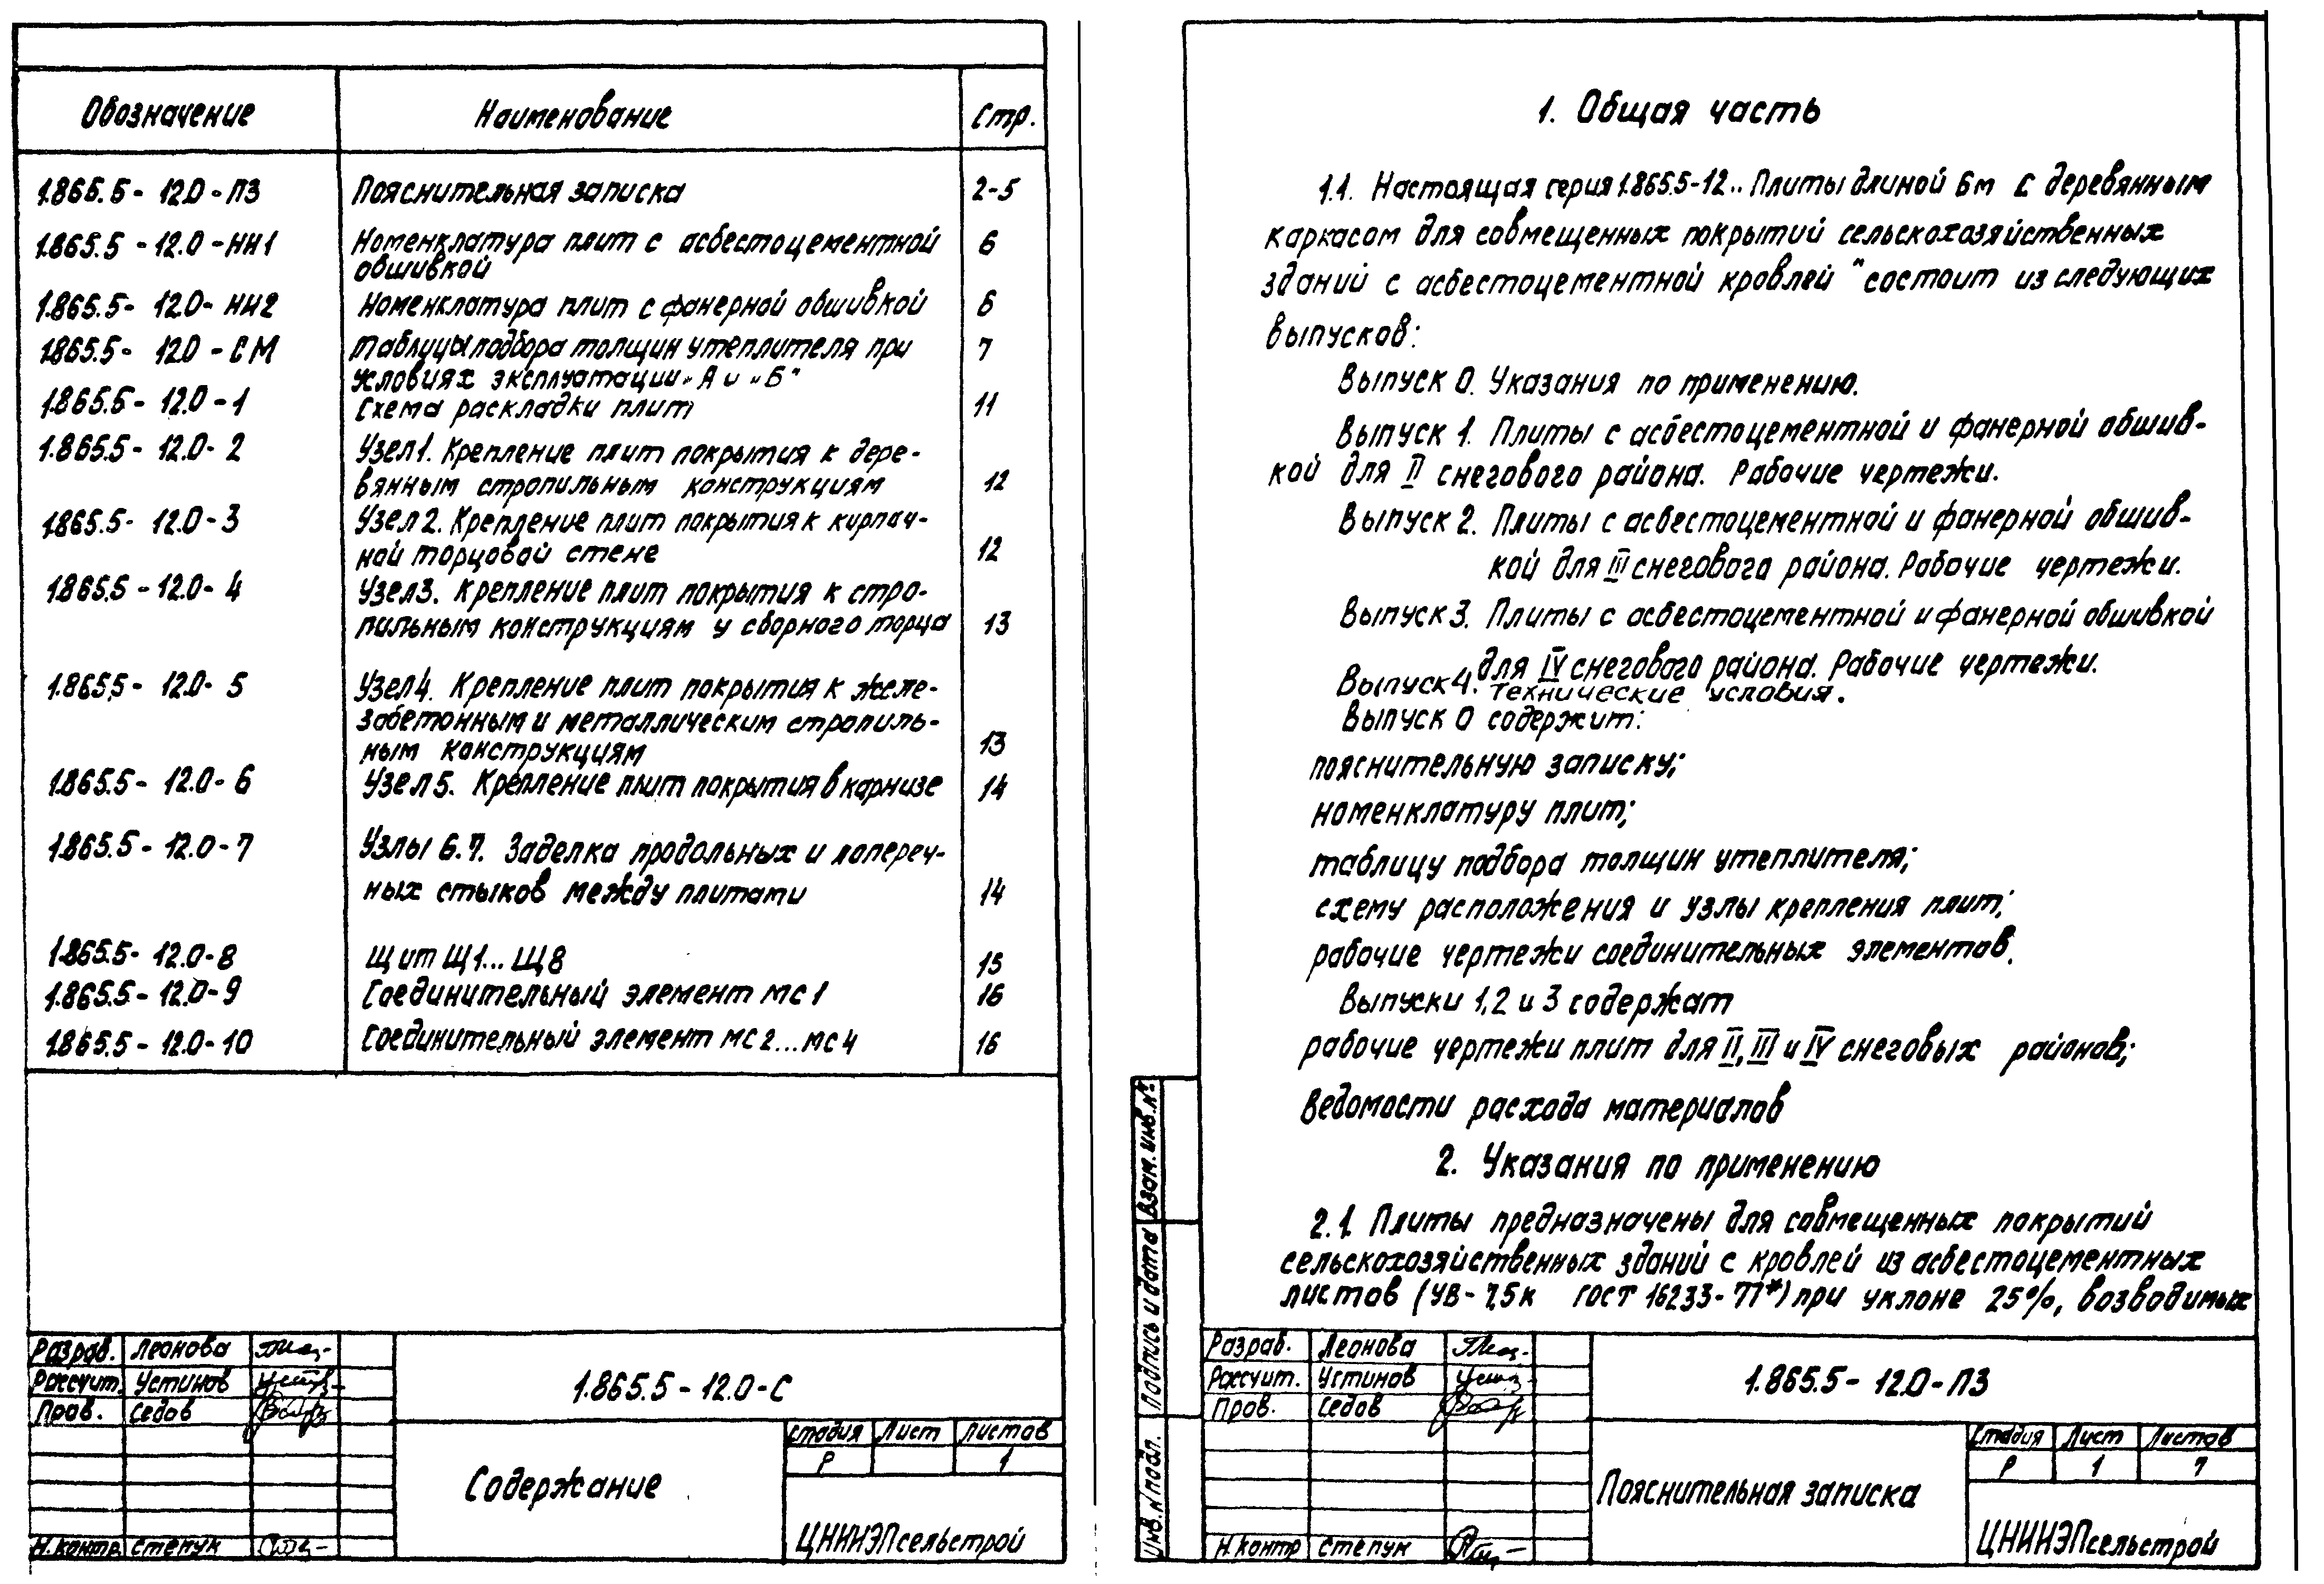 Обозначение Наименование Стр.
1.865.5-12.0-ПЗ Пояснительная записка 2-5
1.865.5-12.0-НИ1 Номенклатура плит с асбестоцементной 6
обшивкой
1.865.5-12.0-НИ2 Номенклатура плит с фанерной обшивкой 6
1.865.5-12.0-СМ Таблицы подбора толщин утеплителя при 7
условиях эксплуатации "А и "Б"
1.865.5-12.0-1 Схема раскладки плит 11
1.865.5-12.0-2 Узел 1. Крепление плит покрытия к дере-
вянным стропильным конструкциям 12
1.865.5-12.0-3 Узел 2. Крепление плит покрытия к кирпич-
ной торцовой стене 12
1.865.5-12.0-4 Узел 3. Крепление плит покрытия к стро-
пильным конструкциям у сборного торца 13
1.865.5-12.0-5 Узел 4. Крепление плит покрытия к желе-
забетонным и металлическим стропиль-
ным конструкциям 13
1.865.5-12.0-6 Узел 5. Крепление плит покрытия в карнизе 14
1.865.5-12.0-7 Узлы 6.7. Заделка продольных и попереч-
ных стыков между плитами 14
1.865.5-12.0-8 Щит Щ1...Щ8 15
1.865.5-12.0-9 Соединительный элемент МС1 16
1.865.5-12.0-10 Соединительный элемент МС2...МС4 16
Разраб. Леонова
Рассчит. Устинов
Пров. Седов
Н.контр. Степук
1.865.5-12.0-С
Содержание
Стадия Лист Листов
Р 1
ЦНИИЭПсельстрой
1. Общая часть
1.1. Настоящая серия 1.865.5-12.. Плиты длиной 6м с деревянным
каркасом для совмещенных покрытий сельскохозяйственных
зданий с асбестоцементной кровлей" состоит из следующих
выпусков:
Выпуск 0. Указания по применению.
Выпуск 1. Плиты с асбестоцементной и фанерной обшив-
кой для II снегового района. Рабочие чертежи.
Выпуск 2. Плиты с асбестоцементной и фанерной обшив-
кой для III снегового района. Рабочие чертежи.
Выпуск 3. Плиты с асбестоцементной и фанерной обшивкой
для IV снегового района. Рабочие чертежи.
Выпуск 4. Технические условия.
Выпуск 0 содержит:
пояснительную записку;
номенклатуру плит;
таблицу подбора толщин утеплителя;
схему расположения и узлы крепления плит;
рабочие чертежи соединительных элементов.
Выпуски 1,2 и 3 содержат
рабочие чертежи плит для II, III и IV снеговых районов;
Ведомости расхода материалов
2. Указания по применению
2.1. Плиты предназначены для совмещенных покрытий
сельскохозяйственных зданий с кровлей из асбестоцементных
листов (УВ-7,5к ГОСТ 16233-77*) при уклоне 25%, возводимых
Инв.N подл. Подпись и дата Взам.инв.№
Разраб. Леонова
Рассчит. Устинов
Пров. Седов
Н.контр Степук
1.865.5-12.0-ПЗ
Пояснительная записка
Стадия Лист Листов
Р 1 7
ЦНИИЭПсельстрой